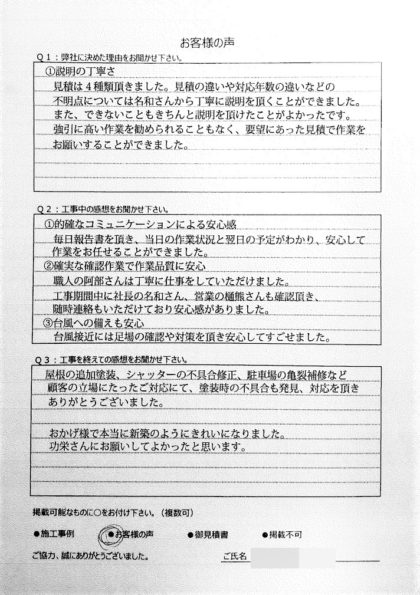 お客様の声
Q１：弊社に決めた理由をお聞かせ下さい。
①説明の丁寧さ
見積は４種類頂きました。見積の違いや対応年数の違いなどの
不明点については名和さんから丁寧に説明を頂くことができました。
また、できないこともきちんと説明を頂けたことがよかったです。
強引に高い作業を勧められることもなく、要望にあった見積で作業を
お願いすることができました。
Q２：工事中の感想をお聞かせ下さい。
①的確なコミュニケーションによる安心感
毎日報告書を頂き、当日の作業状況と翌日の予定がわかり、安心して
作業をお任せることができました。
②確実な確認作業で作業品質に安心
職人の阿部さんは丁寧に仕事をしていただけました。
工事期間中に社長の名和さん、営業の樋熊さんも確認頂き、
随時連絡もいただけており安心感がありました。
③台風への備えも安心
台風接近には足場の確認や対策を頂き安心してすごせました。
Q３：工事を終えての感想をお聞かせ下さい。
屋根の追加塗装、シャッターの不具合修正、駐車場の亀裂補修など
顧客の立場にたったご対応にて、塗装時の不具合も発見、対応を頂き
ありがとうございました。
おかげ様で本当に新築のようにきれいになりました。
功栄さんにお願いしてよかったと思います。
掲載可能なものに○をお付け下さい。（複数可）
●施工事例 ●お客様の声 ●御見積書 ●掲載不可
ご協力、誠にありがとうございました。 ご氏名